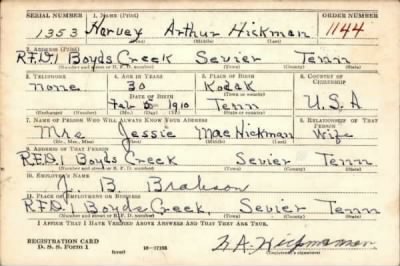 SERIAL NUMBER 1. NAME (Print) ORDER NUMBER
1353 Harvey Arthur Hickman 1144
(First) (Middle) (Last)
2. ADDRESS (Print)
R.F.D.1 Boyds Creek Sevier Tenn
(Number and street or R. F. D. number) (Town) (County) (State)
3. TELEPHONE 4. AGE IN YEARS 5. PLACE OF BIRTH 6. COUNTRY OF CITIZENSHIP
none 30 Kodak
DATE OF BIRTH (Town or county)
Feb 5 1910 Tenn U.S.A
(Exchange) (Number) (Mo.) (Day) (Yr.) (State or country)
7. NAME OF PERSON WHO WILL ALWAYS KNOW YOUR ADDRESS 8. RELATIONSHIP OF THAT PERSON
Mrs Jessie Mae Hickman Wife
(Mr., Mrs., Miss) (First) (Middle) (Last)
9. ADDRESS OF THAT PERSON
R.F.D.1 Boyds Creek Sevier Tenn
(Number and street or R. F. D. number) (Town) (County) (State)
10. EMPLOYER'S NAME
J. B. Brabson
11. PLACE OF EMPLOYMENT OR BUSINESS
R.F.D.1 Boyds Creek, Sevier Tenn
(Number and street or R. F. D. number) (Town) (County) (State)
I AFFIRM THAT I HAVE VERIFIED ABOVE ANSWERS AND THAT THEY ARE TRUE.
REGISTRATION CARD
D. S. S. Form 1 (over) 16-17105
Hickman
(Registrant's signature)